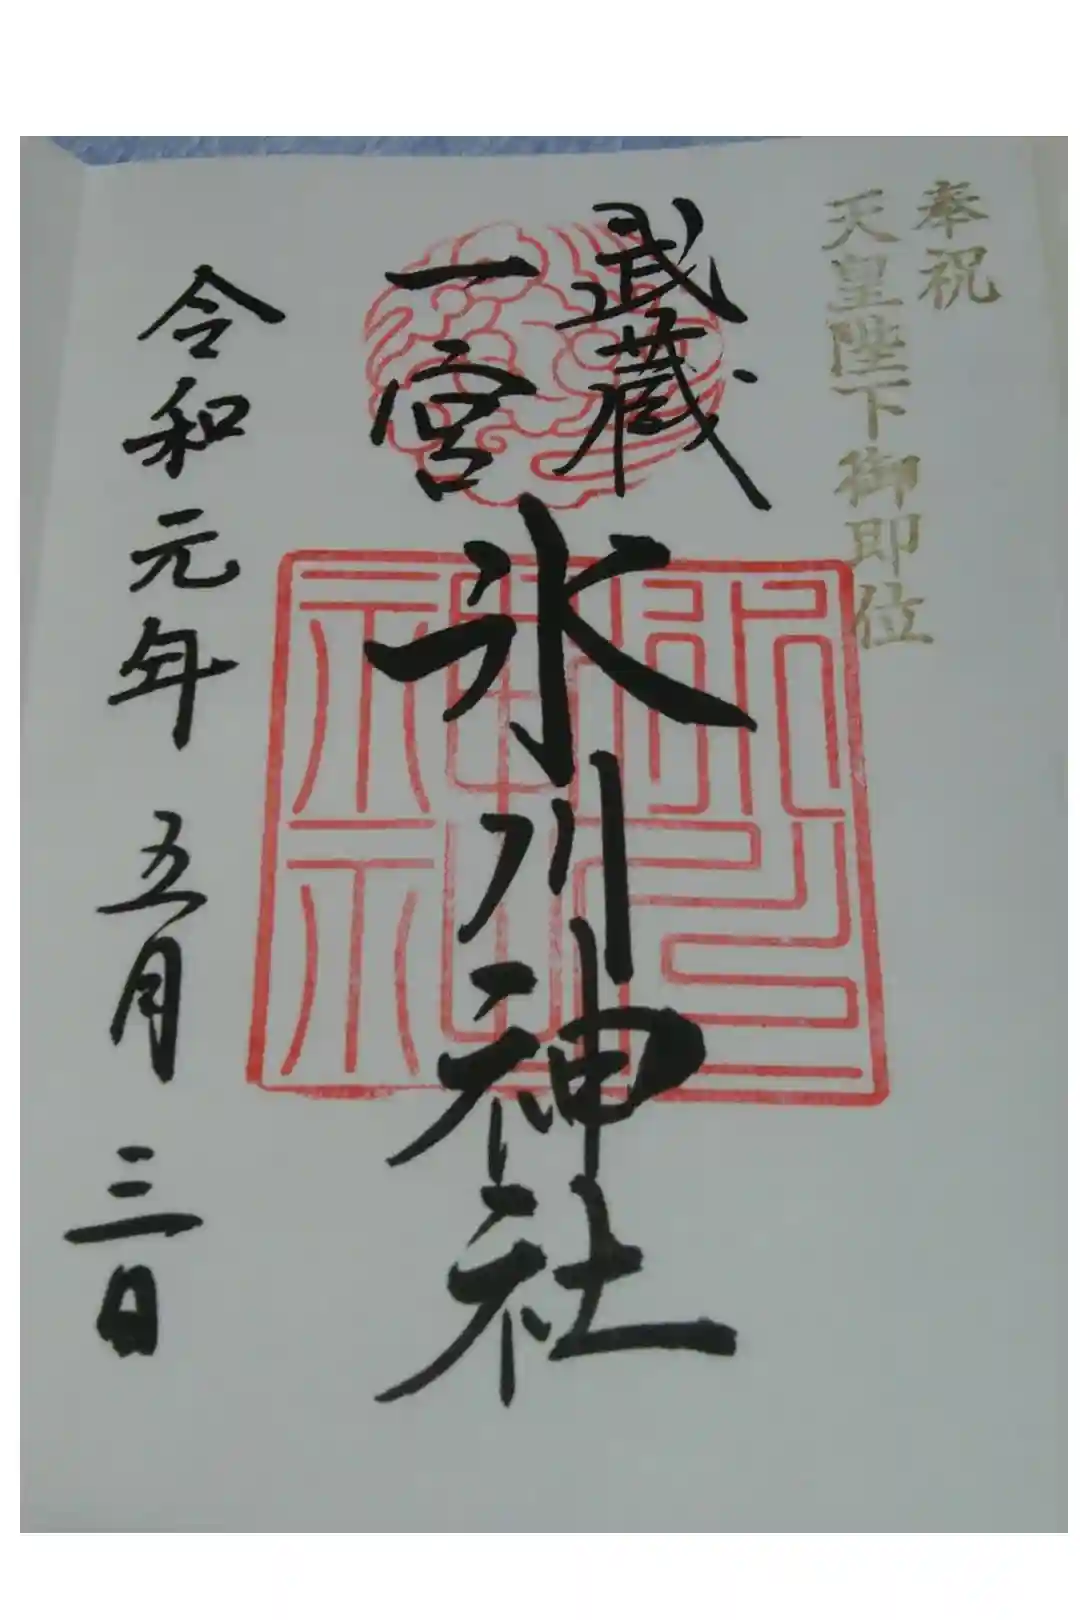 奉祝
天皇陛下御即位
武蔵
一宮
氷川神社
令和元年 五月 三日
氷川
神社